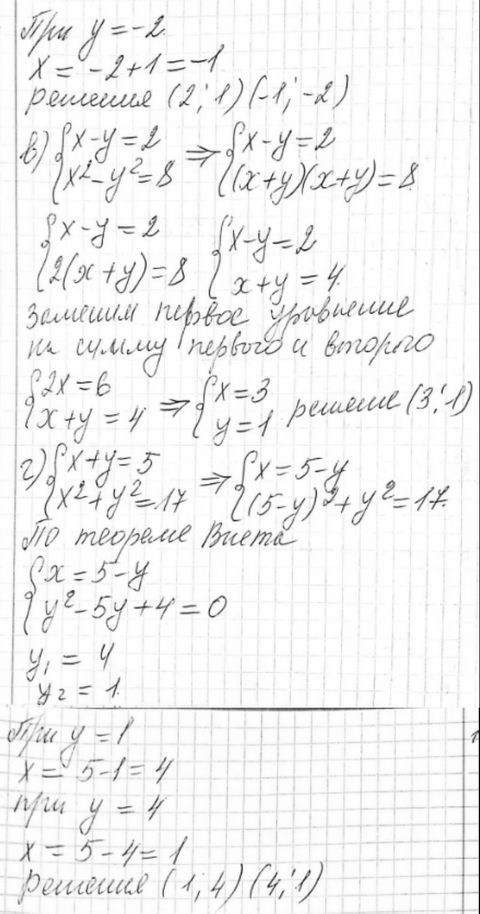 При y = -2
x = -2+1 = -1
решения (2; 1) (-1; -2)
в) {x-y=2 ⇒ {x-y=2
{x²-y²=8 {(x+y)(x+y)=8
{x-y=2 {x-y=2
{2(x+y)=8 {x+y=4
Заменим первое уравнение
на сумму первого и второго
{2x=6 ⇒ {x=3
{x+y=4 {y=1 решение (3; 1)
г) {x+y=5 ⇒ {x=5-y
{x²+y²=17 {(5-y)²+y²=17.
По теореме Виета
{x=5-y
{y²-5y+4=0
y₁ = 4
y₂ = 1.
При y = 1
x = 5-1 = 4
при y = 4
x = 5-4 = 1
решения (1, 4) (4; 1)